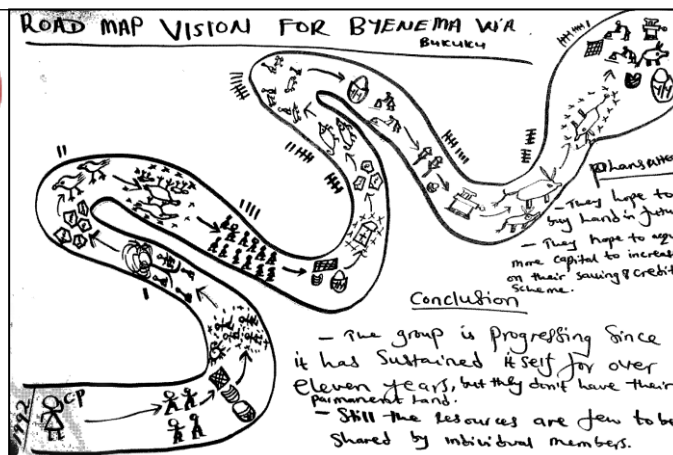 ROAD MAP VISION FOR BYENEMA W'A
BUKUKU
- They hope to
buy Land in future
- They hope to
more capital to increase
on their saving & credit
scheme.
Conclusion
- The group is Progressing Since
it has Sustained itself for over
eleven years, but they don't have their
parmanent Land.
- Still the resources are few to be
Shared by individual members.
CP
1992